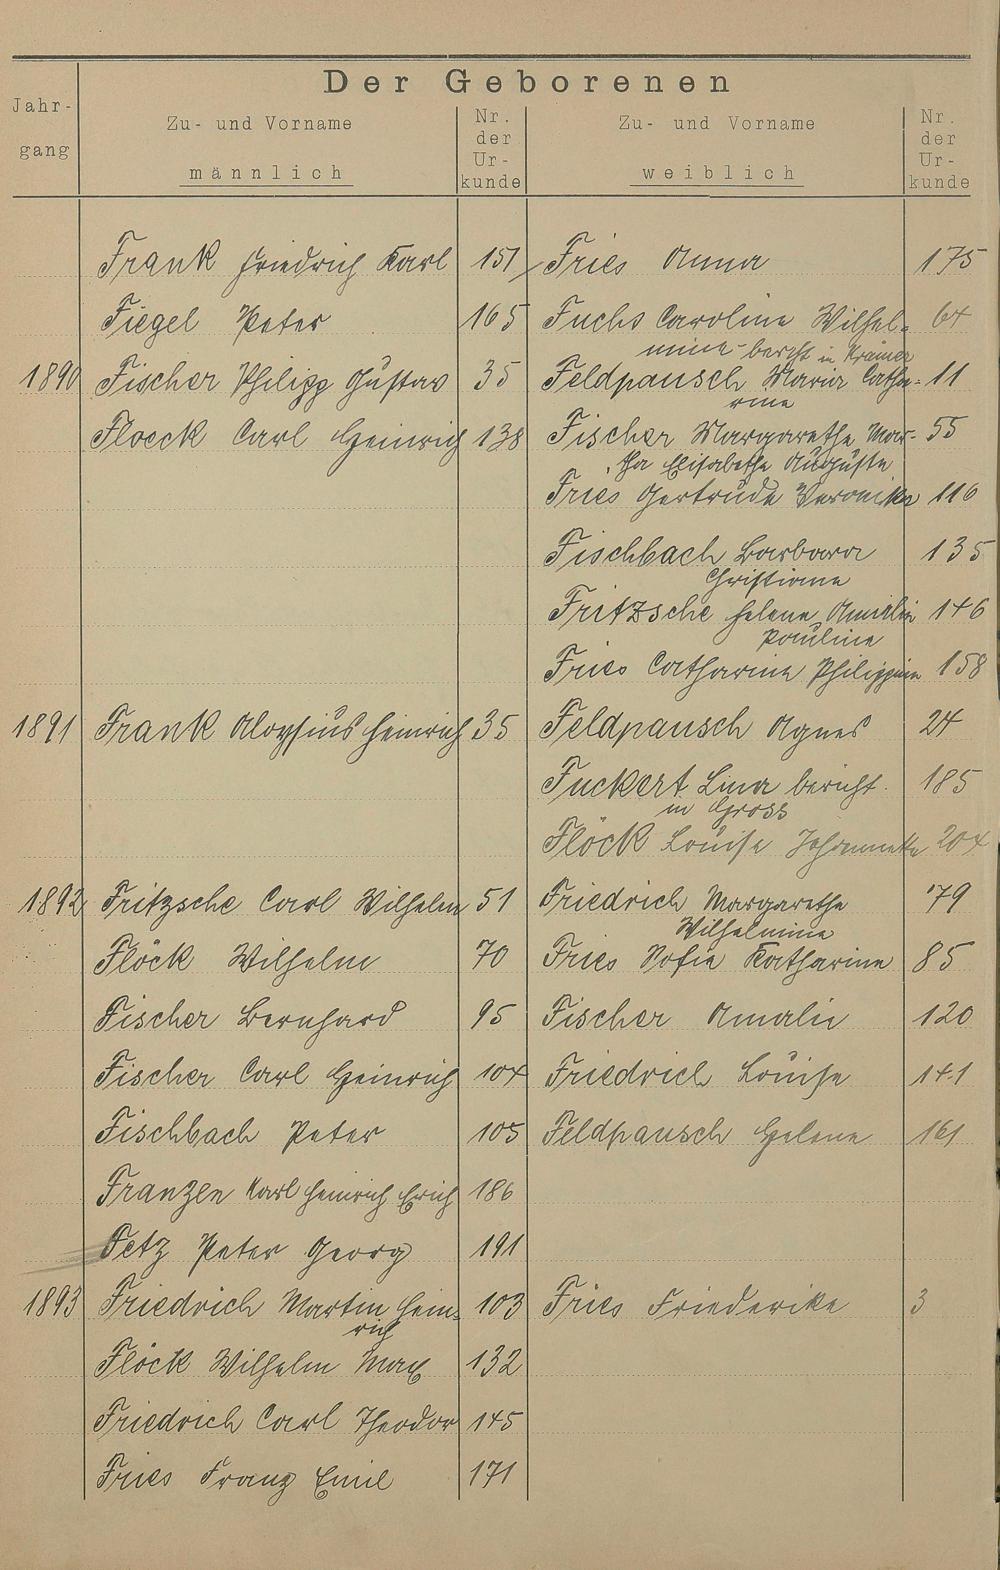 Der Geborenen
Jahr-
gang
Zu- und Vorname
männlich
Nr.
der
Ur-
kunde
Zu- und Vorname
weiblich
Nr.
der
Ur-
kunde
Frank Friedrich Karl 151 Fries Anna 175
Fiegel Peter 165 Fuchs Caroline Wilhel- 64
mine - bericht in Krämer
1890 Fischer Philipp Gustav 35 Feldpausch Maria Catha- 11
rine
Floeck Carl Heinrich 138 Fischer Margarethe Mar- 55
tha Elisabethe Auguste
Fries Gertrude Veronika 116
Fischbach Barbara 135
Christiane
Fritzsche Helene Amalie 146
Pauline
Fries Catharine Philippine 158
1891 Frank Aloysius Heinrich 35 Feldpausch Agnes 24
Fuckert Lina bericht. 185
in Gross
Flöck Louise Johannette 204
1892 Fritzsche Carl Wilhelm 51 Friedrich Margarethe 79
Wilhelmine
Flöck Wilhelm 70 Fries Sofie Katharine 85
Fischer Bernhard 95 Fischer Amalie 120
Fischer Carl Heinrich 104 Friedrich Louise 141
Fischbach Peter 105 Feldpausch Helene 161
Franzen Karl Heinrich Erich 186
Fetz Peter Georg 191
1893 Friedrich Martin Hein- 103 Fries Friederike 3
rich
Flöck Wilhelm Max 132
Friedrich Carl Theodor 145
Fries Franz Emil 171